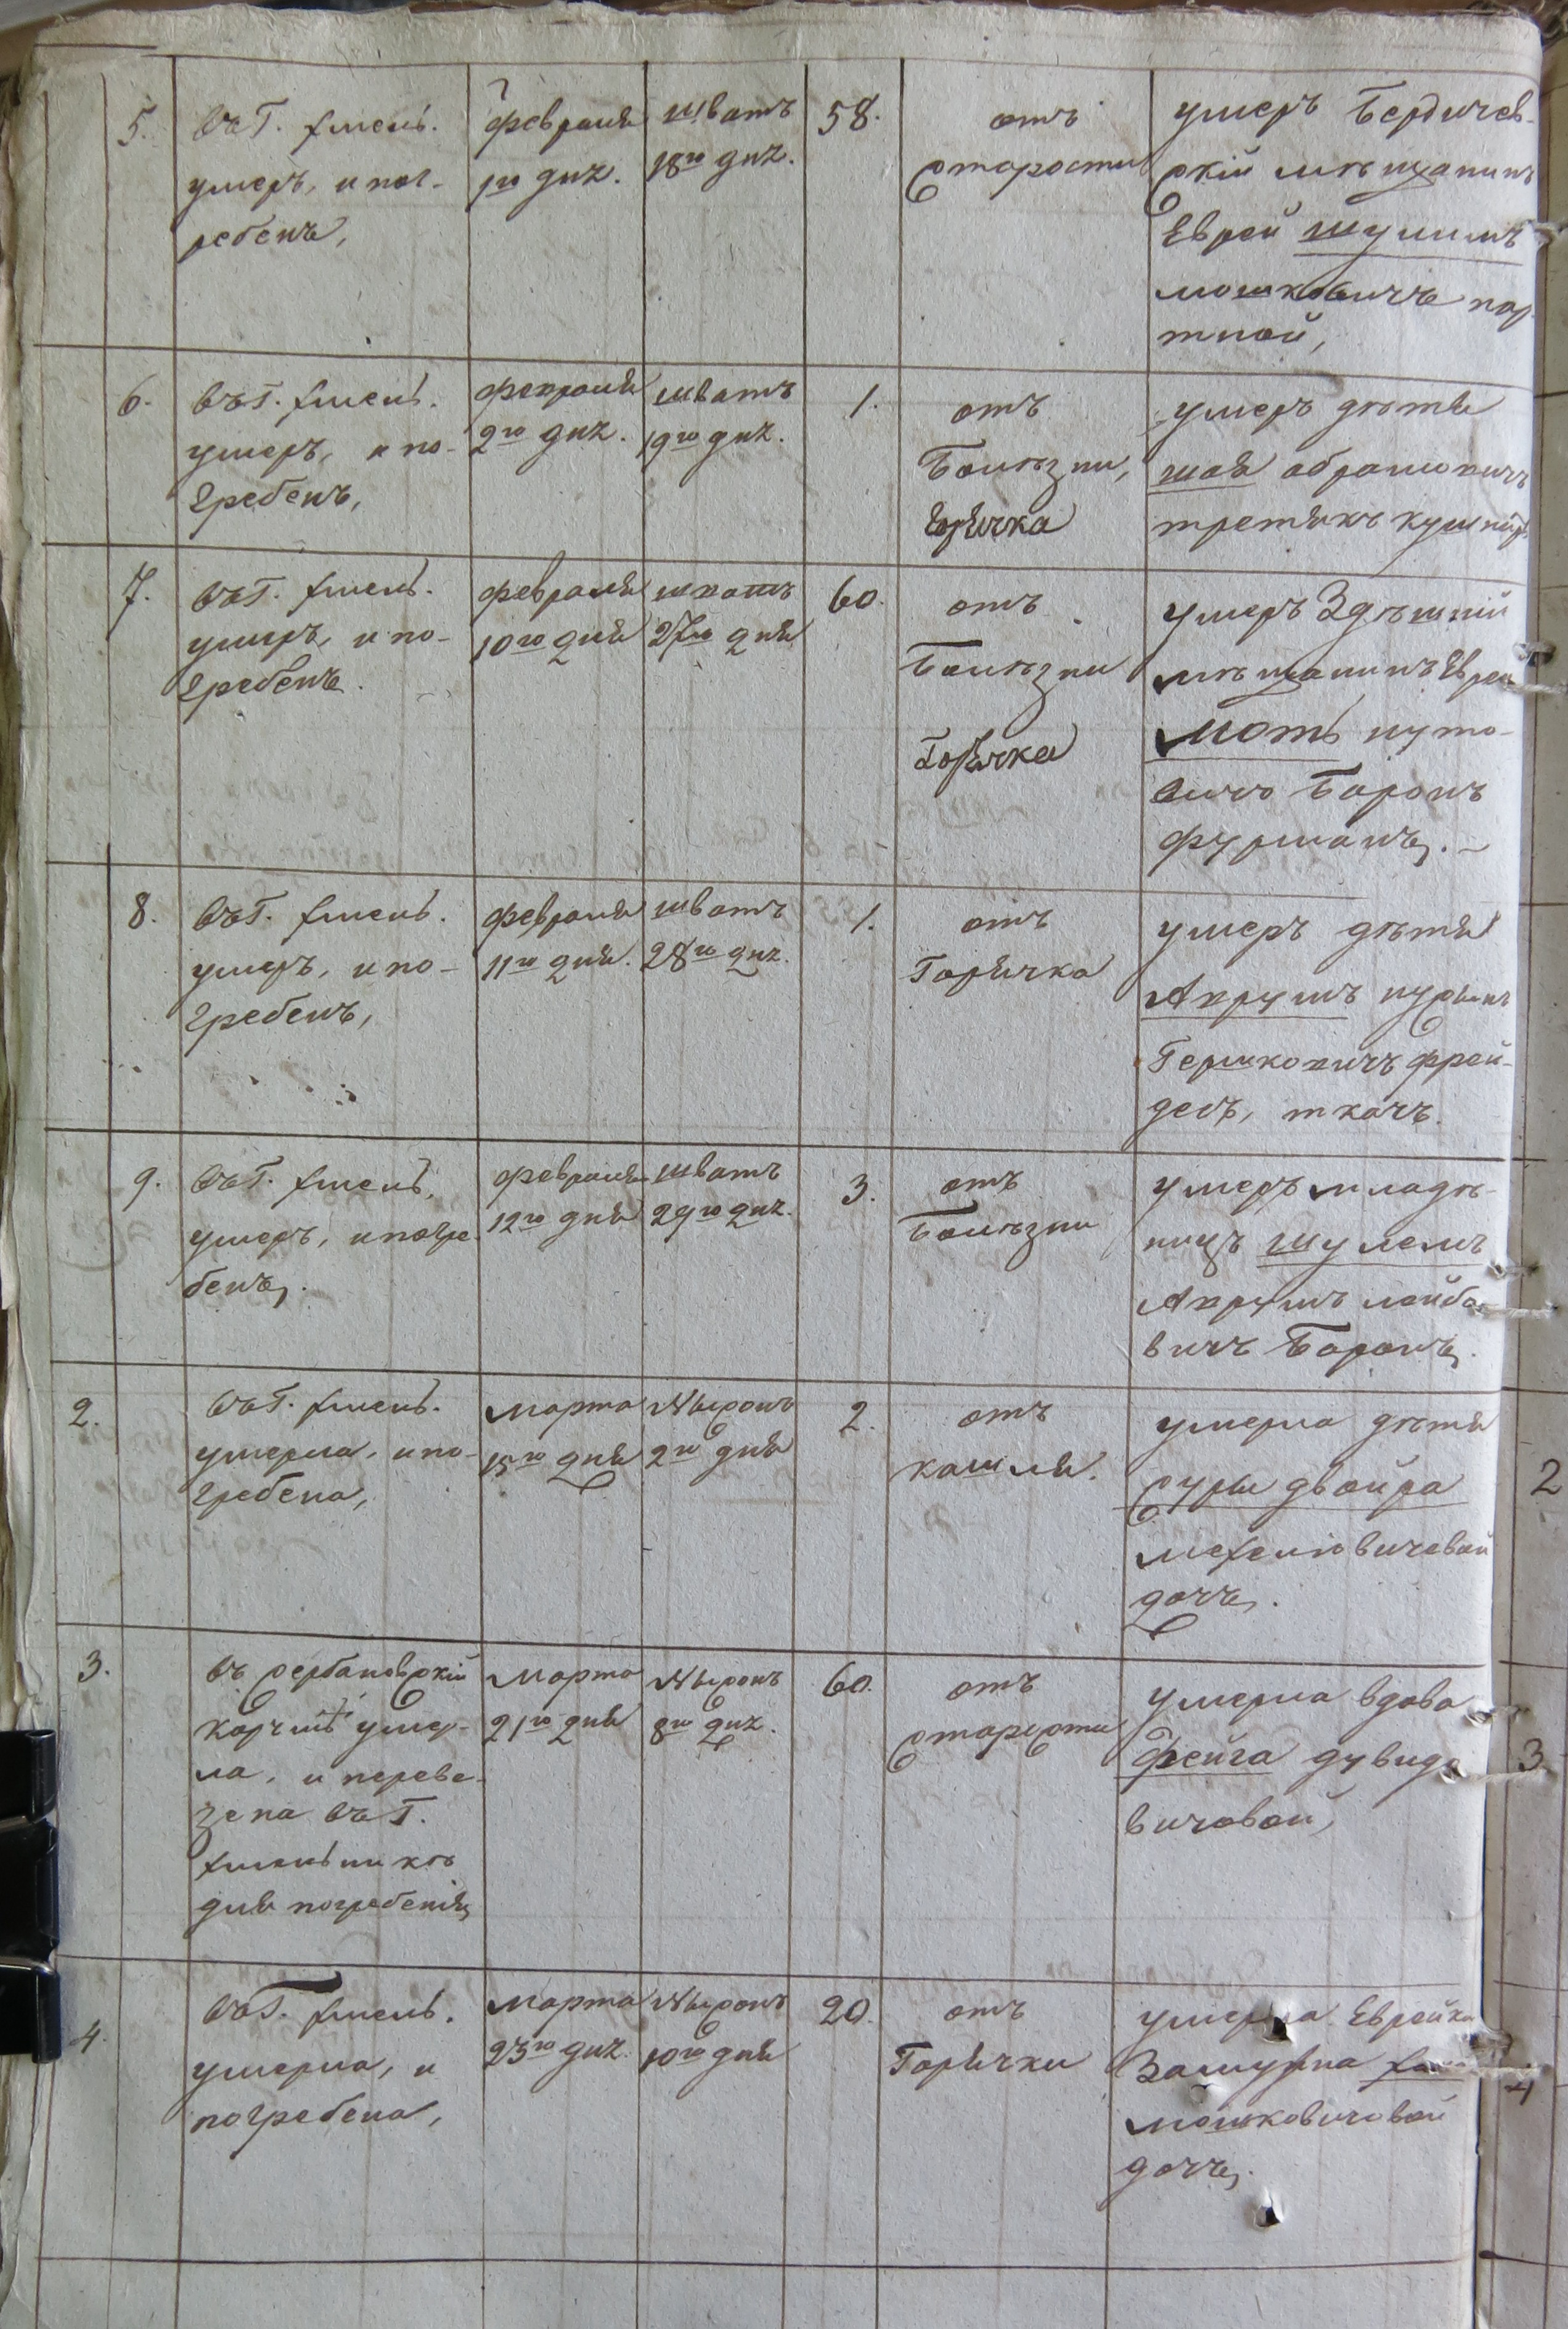 5.
въ Г. Хмелъ.
умеръ, и пог-
ребенъ,
февраля
1го дня.
шватъ
18го дня.
58.
отъ
старости
умеръ Бердичев-
скій мѣщанинъ
Еврей шулимъ
мошковичъ пор
тной,
6.
въ Г. Хмелъ.
умеръ, и по-
гребенъ,
февраля
2го дня.
шватъ
19го дня.
1.
отъ
Болѣзни,
Горячка
умеръ дѣтя
шая абрамовичъ
третякъ кушнѣръ
7.
въ Г. Хмелъ.
умеръ, и по-
гребенъ.
февраля
10го дня
шватъ
27го дня
60.
отъ
Болѣзни
Горячка
умеръ Здѣшній
мѣщанинъ Еврей
Моть нуто-
вичъ Баронъ
фурманъ.
8.
въ Г. Хмелъ.
умеръ, и по-
гребенъ,
февраля
11го дня.
шватъ
28го дня.
1.
отъ
Горячка
умеръ дѣтя
Аврумъ
Гершковичъ фрей-
десъ, ткачъ.
9.
въ Г. Хмелъ,
умеръ, и погре
бенъ.
февраля
12го дня
шватъ
29го дня.
3.
отъ
Болѣзни
умеръ младѣ-
ницъ шулемъ
Аврумъ лейбо
вичъ Баронъ.
2.
въ Г. Хмелъ.
умерла, и по-
гребена,
марта
15го дня
Нысонъ
2го дня
2.
отъ
кашля.
умерла дѣтя
Суры двойра
мехелювичевой
дочъ.
2
3.
въ сербановскій
корчмѣ умер-
ла, и переве-
зена въ Г.
Хмельникѣ
для погребенія
Марта
21го дня
Нысонъ
8го дня.
60.
отъ
старости
умерла вдова
Фейга дувидо
вичовой,
3
4.
въ Г. Хмелъ.
умерла, и
погребена,
марта
23го дня.
Нысонъ
10го дня
20.
отъ
Горячки
умерла Еврейка
Замужна
мошковичовой
дочъ.
4